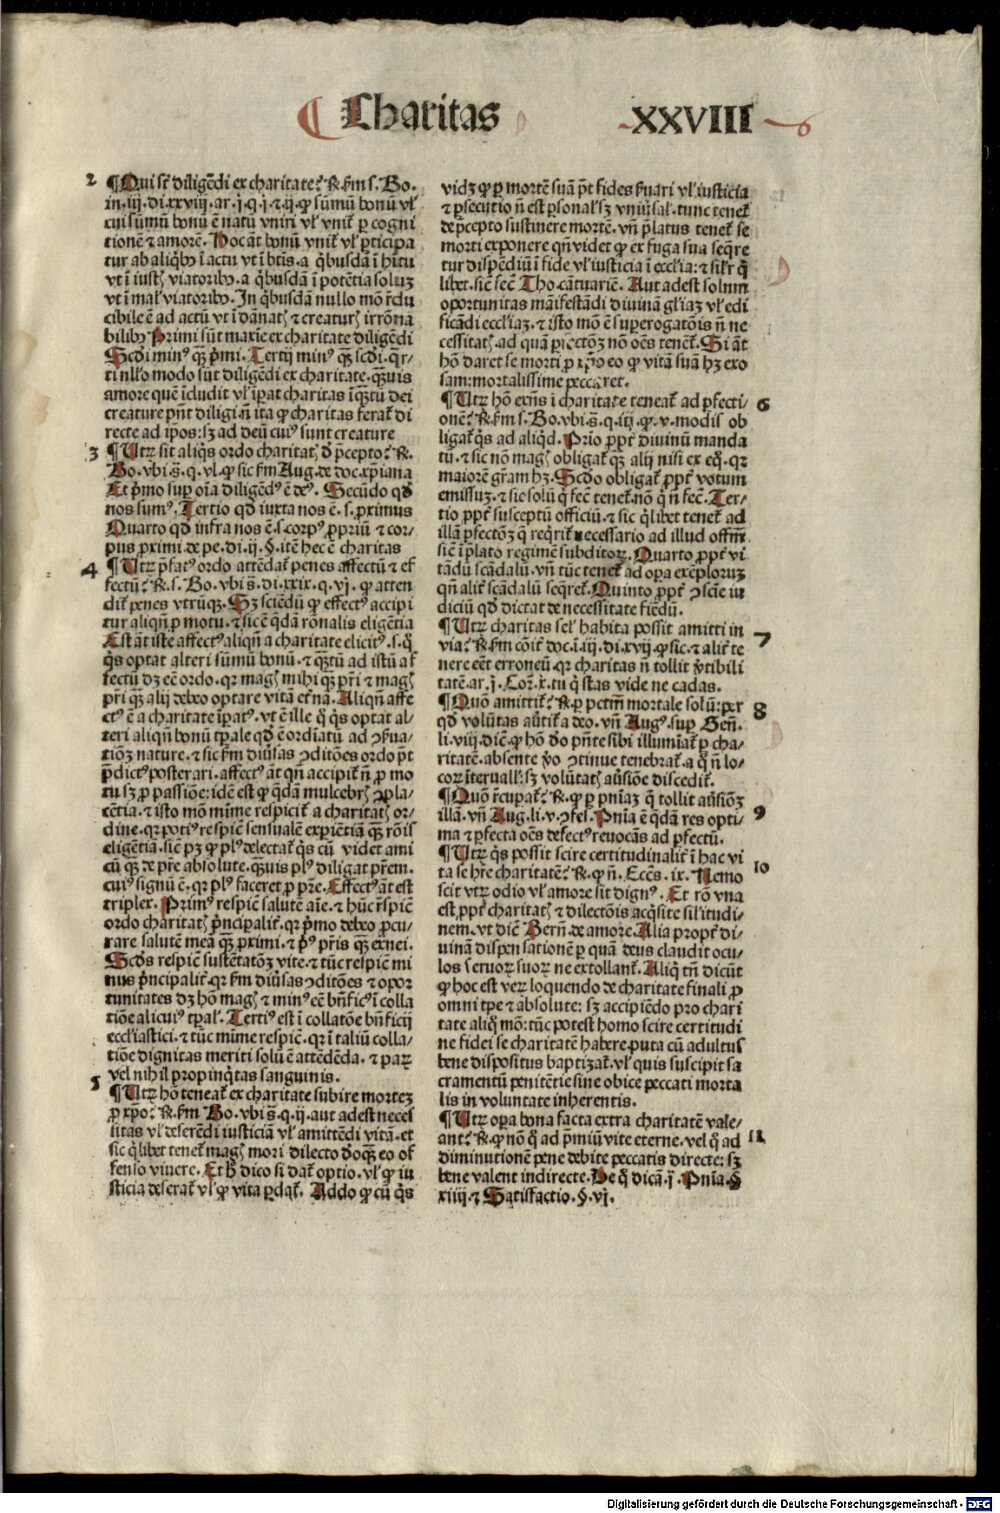 Charitas XXVIII
2 ¶Qui sūt diligēdi ex charitate? ℞. ẜm s. Bo.
in .iij. di. xxviij. ar. j. q. j. ⁊ ij. ꝙ sūmū bonū vl̓
cui sūmū bonū ē natū vniri vl̓ vnit᷑ ꝑ cogni
tionē ⁊ amorē. Hoc aūt bonū vnit᷑ vl̓ ꝑticipa
tur ab aliqͥbꝰ ī actu vt ī bt̄is. a qͥbusdā ī hītu
vt ī iustꝭ viatoribꝰ. a qͥbusdā ī potētia soluꝫ
vt ī mal̓ viatoribꝰ. In qͥbusdā nullo mō r̄du
cibile ē ad actū vt ī dānatꝭ ⁊ creaturꝭ irrōna
bilibꝰ Primi sūt maxīe ex charitate diligēdi
Scd̓i minꝰ qꝫ pͥmi. Tertij minꝰ qꝫ scd̓i. q̄r
ti nllo modo sūt diligēdi ex charitate. qꝫuis
amore quē īcludit vl̓ īꝑat charitas īqꝫtū dei
creature pn̄t diligi n̄ ita ꝙ charitas ferat᷑ di
recte ad ip̄os: sꝫ ad deū cuiꝰ sunt creature
3 ¶Utꝝ sit aliqͥs ordo charitatꝭ d̓ p̄cepto? ℞.
Bo. vbi s̄. q. vl̓. ꝙ sic ẜm Aug. de doc. xp̄iana
Et pͥmo suꝑ oīa diligēdꝰ ē deꝰ. Secūdo qd̓
nos sumꝰ. Tertio qd̓ iuxta nos ē. s. proximus
Quarto qd̓ infra nos ē. s. corpꝰ ꝓpriū ⁊ cor-
pus ꝓximi. de pe. di. ij. §. itē hec ē charitas
4 ¶Utꝝ p̄fatꝰ ordo attēdat᷑ penes affectū ⁊ ef
fectū? ℞. s. Bo. vbi s̄. di. xxix. q. vj. ꝙ atten
dit᷑ penes vtrūqꝫ. Sꝫ sciēdū ꝙ effectꝰ accipi
tur aliqn̄ ꝓ motu. ⁊ sic ē q̄dā rōnalis eligētia
Est aūt iste affectꝰ aliqn̄ a charitate elicitꝰ. s. q̊
qͥs optat alteri sūmū bonū. ⁊ qꝫtū ad istū af
fectū dꝫ eē ordo. qr magꝭ mihi qꝫ pr̄i ⁊ magꝭ
pr̄i qꝫ alij debeo optare vitā et̓nā. Aliqn̄ affe
ctꝰ ē a charitate īꝑatꝰ. vt ē ille q̊ qͥs optat al-
teri aliqn̄ bonū tꝑale qd̓ ē ordīatū ad ꝯẜua-
tiōꝫ nature. ⁊ sic ẜm diūsas ꝯditōes ordo pōt
p̄dictꝰ posterari. affectꝰ aūt qn̄ accipit᷑ n̄ ꝓ mo
tu sꝫ ꝓ passiōe: idē est ꝙ q̄dā mulcebrꝭ ꝯpla-
cētia. ⁊ isto mō mīme respicit᷑ a charitatꝭ or-
dine. qr potiꝰ respic̄ sensualē exꝑiētiā qꝫ rōīs
eligētiā. sic̄ pꝫ ꝙ plꝰ delectat᷑ qͥs cū videt ami
cū qꝫ de pr̄e absolute. qꝫuis plꝰ diligat pr̄em.
cuiꝰ signū ē. qr plꝰ faceret ꝓ pr̄e. Effectꝰ aūt est
triplex. Primꝰ respic̄ salutē aīe. ⁊ hūc r̄spic̄
ordo charitatꝭ pͥncipalit᷑. qr pͥmo debeo ꝓcu-
rare salutē meā qꝫ ꝓximi. ⁊ pͥꝰ pr̄is qꝫ exnei.
Scd̓s respic̄ sustētatōꝫ vite. ⁊ tūc respic̄ mi
nus pͥncipalit᷑. qr ẜm diūsas ꝯditōes ⁊ opor
tunitates dꝫ hō magꝭ ⁊ minꝰ eē bn̄ficꝰ ī colla
tiōe alicuiꝰ tꝑal̓. Tertiꝰ est ī collatōe bn̄ficij
eccl̓iastici. ⁊ tūc mīme respic̄. qr ī taliū colla-
tiōe dignitas meriti solū ē attēdēda. ⁊ paꝝ
vel nihil propinqͥtas sanguinis.
5 ¶Utꝝ hō teneat᷑ ex charitate subire morteꝫ
ꝓ xp̄o? ℞. ẜm Bo. vbi s̄. q. ij. aut adest neces
sitas vl̓ deserēdi iusticiā vl̓ amittēdi vitā. et
sic qͥlibet tenet᷑ magꝭ mori dilecto d̓oqꝫ eo of
fenso viuere. Et h̓ dico si dat᷑ optio. vl̓ ꝙ iu
sticia deserat᷑ vl̓ ꝙ vita ꝑdat᷑. Addo ꝙ cū qͥs
vidꝫ ꝙ ꝑ mortē suā pōt fides ẜuari vl̓ iusticia
⁊ ꝑsecutio n̄ est ꝑsonal̓ sꝫ vniūsal̓. tunc tenet᷑
de p̄cepto sustinere mortē. vn̄ p̄latus tenet᷑ se
morti exponere qn̄ videt ꝙ ex fuga sua seq̄re
tur dispēdiū ī fide vl̓ iusticia ī eccl̓ia: ⁊ sil̓r q̊
libet. sic̄ fec̄ Tho. cātuariē. Aut adest solum
oportunitas māifestādi diuinā gl̓iaꝫ vl̓ edi
ficādi eccl̓iaꝫ. ⁊ isto mō ē suꝑerogatōis n̄ ne
cessitatꝭ. ad quā ꝑfectōꝫ nō oēs tenēt᷑. Si aūt
hō daret se morti ꝓ xp̄o eo ꝙ vitā suā hꝫ exo
sam: mortalissime peccaret.
¶Utꝝ hō exn̄s ī charitate teneat᷑ ad ꝑfecti- 6
onē? ℞. ẜm s. Bo. vbi s̄. q. iij. ꝙ. v. modis ob
ligat᷑ qͥs ad aliqͥd. Prīo ꝓpt᷑ diuinū manda
tū. ⁊ sic nō magꝭ obligat᷑ qꝫ alij nisi ex eq̊. qr
maiorē gr̄am hꝫ. Scd̓o obligat᷑ ꝓpt᷑ votum
emissuꝫ. ⁊ sic solū q̊ fec̄ tenet᷑. nō q̊ n̄ fec̄. Ter-
tio ꝓpt᷑ susceptū officiū. ⁊ sic qͥlibet tenet᷑ ad
illā ꝑfectōꝫ q̄ reqͥrit᷑ necessario ad illud offm̄
sic̄ ī p̄lato regimē subditoꝝ. Quarto ꝓpt᷑ vi
tādū scādalū. vn̄ tūc tenet᷑ ad oꝑa exēploruꝫ
qn̄ alit᷑ scādalū seq̄ret᷑. Quinto ꝓpt᷑ ꝯsciē iu
diciū qd̓ dictat de necessitate fiēdū.
¶Utꝝ charitas sel̓ habita possit amitti in 7
via? ℞. ẜm cōīt᷑ doc. ī. iij. di. xvij. ꝙ sic. ⁊ alit᷑ te
nere eēt erroneū. qr charitas n̄ tollit v̓tibili
tatē. ar. j. Cor̄. x. tu q̊ stas vide ne cadas.
¶Quō amittit᷑? ℞. ꝑ pctm̄ mortale solū: per 8
qd̓ volūtas aūtit᷑ a deo. vn̄ Augꝰ. suꝑ Gen̄.
li. viij. dic̄. ꝙ hō d̓o pn̄te sibi illumīat᷑ ꝑ cha-
ritatē. absente v̓o ꝯtinue tenebrat᷑. a q̊ n̄ lo-
coꝝ īteruall̓: sꝫ volūtatꝭ aūsiōe discedit᷑.
¶Quō r̄cuꝑat᷑? ℞. ꝙ ꝑ pn̄iaꝫ q̄ tollit aūsiōꝫ 9
illā. vn̄ Aug. li. v. ꝯfes. Pn̄ia ē q̄dā res opti-
ma ⁊ ꝑfecta oēs defectꝰ reuocās ad ꝑfectū.
¶Utꝝ qͥs possit scire certitudinalit᷑ ī hac vi 10
ta se hr̄e charitatē? ℞. ꝙ n̄. Eccēs. ix. Nemo
scit vtꝝ odio vl̓ amore sit dignꝰ. Et rō vna
est. ꝓpt᷑ charitatꝭ ⁊ dilectōis acqͥsite sil̓itudi-
nem. vt dic̄ Bern̄. de amore. Alia propt᷑ di-
uinā dispensationē ꝑ quā deus claudit ocu-
los seruoꝝ suoꝝ ne extollant᷑. Aliqͥ tn̄ dicūt
ꝙ hoc est veꝝ loquendo de charitate finali ꝓ
omni tꝑe ⁊ absolute: sꝫ accipiēdo pro chari
tate aliq̊ mō: tūc potest homo scire certitudi
ne fidei se charitatē habere. puta cū adultus
bene dispositus baptizat᷑. vl̓ quis suscipit sa
cramentū penitētie sine obice peccati morta
lis in voluntate inherentis.
¶Utꝝ oꝑa bona facta extra charitatē vale- 11
ant? ℞. ꝙ nō q̊ ad p̄miū vite eterne. vel q̊ ad
diminutionē pene debite peccatis directe: sꝫ
bene valent indirecte. De q̊ dicā. j. Pn̄ia. §
xiiij. ⁊ Satisfactio. §. vj.
Digitalisierung gefördert durch die Deutsche Forschungsgemeinschaft - DFG